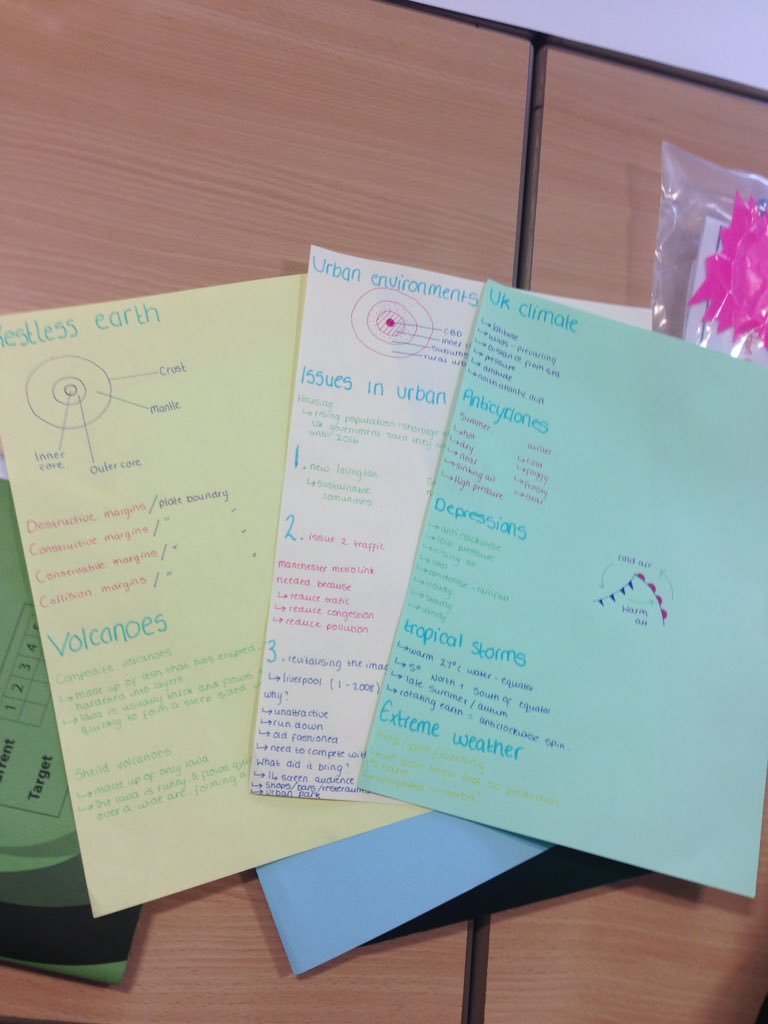 Restless earth
Crust
mantle
Inner core
Outer core
Destructive margins / plate boundry
Constructive margins / " "
Conservative margins / " "
Collision margins / "
Volcanoes
Composite volcanoes
↳ made up of ash that has erupted
hardened into layers.
↳ lava is usually thick and flows
quickly to form a steep sided
Sheild volcanoes
↳ made up of only lava
↳ The lava is runny. It flows
over a wide arc. forming a
Urban environments
CBD
inner
suburbs
rural
Issues in urban
Housing
↳ rising population = shortage
UK government said they
until 2016
1. new Islington
↳ sustainable
comunities
2. issue 2 traffic
manchester metrolink
needed because
↳ reduce trafic
↳ reduce congestion
↳ reduce pollution
3. revitalising the imag
↳ liverpool (1-2008)
why?
↳ unattractive
↳ run down
↳ old fashioned
↳ need to compete with
What did it bring?
↳ 14 screen audience
↳ shops/bars/resteraunts
↳ urban park
UK climate
↳ latitude
↳ winds - prevailing
↳ Distance from sea
↳ pressure
↳ altitude
↳ north atlantic drift
Anticyclones
Summer
↳ hot
↳ dry
↳ clear
↳ sinking air
↳ High pressure
winter
↳ cold
↳ foggy
↳ frosty
↳ clear
Depressions
↳ anticlockwise
↳ low pressure
↳ rising air
↳ cool
↳ condense - rainfall
↳ cloudy
↳ stormy
↳ windy
cold air
warm air
tropical storms
↳ warm 27°c water - equator
↳ 5° North + South of equator
↳ late Summer / autum
↳ rotating earth = anticlockwise spin.
Extreme weather
Prep / plan / warning
↳ we dont know alot so prediction
is hard
Target
1 2 3 4 5